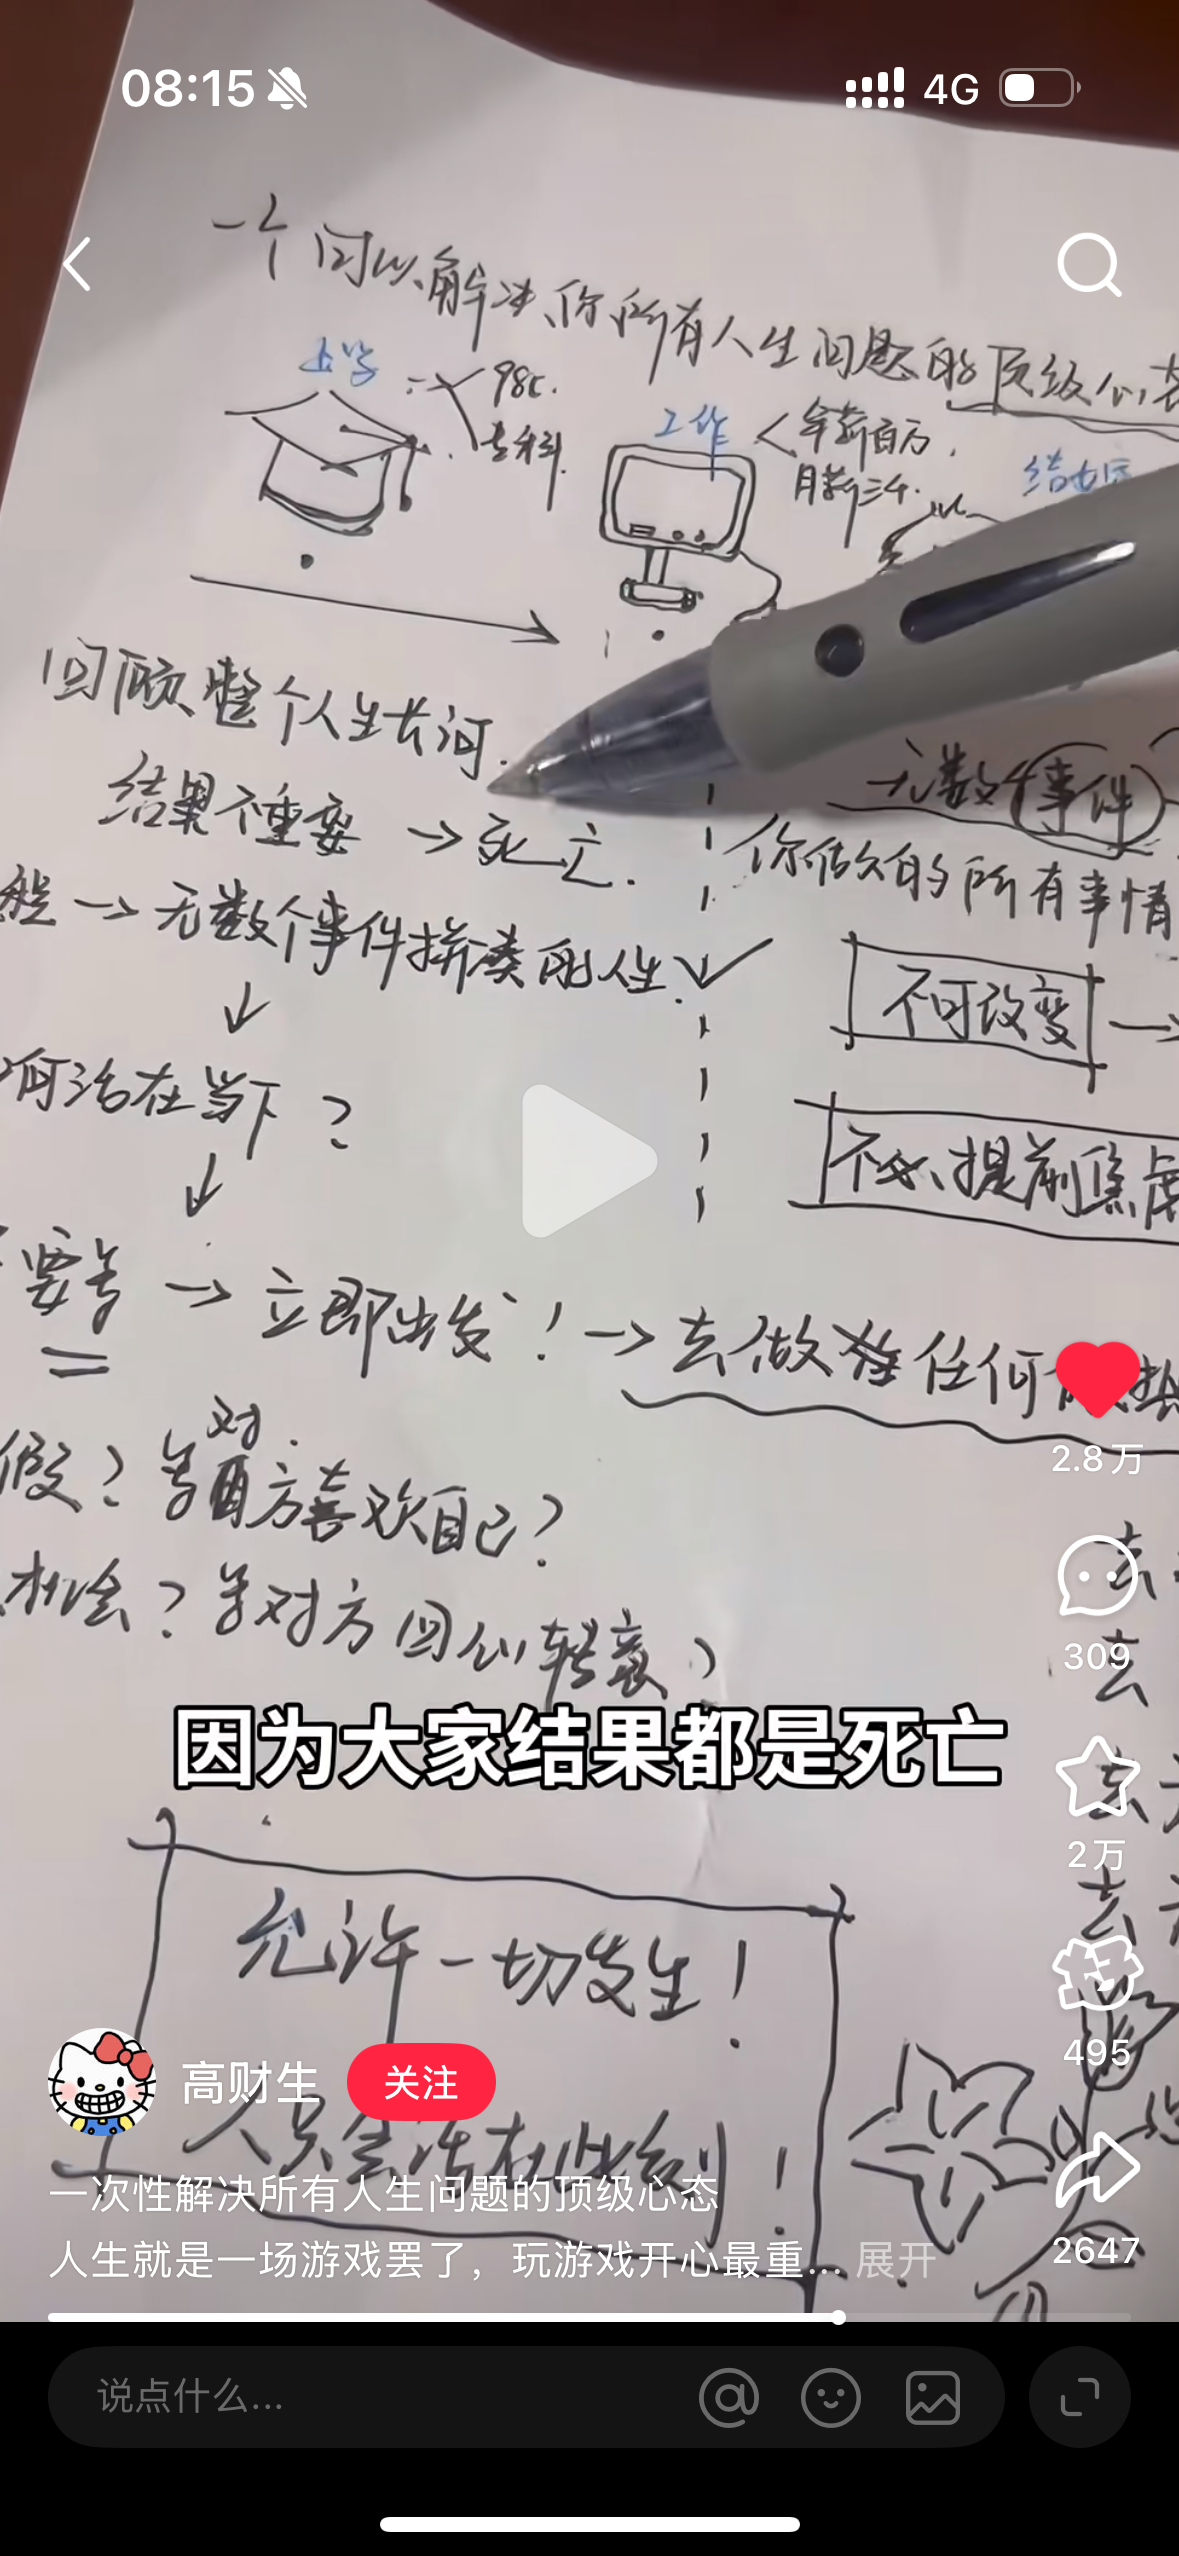 08:15
4G
一个可以解决你所有人生问题的顶级心态
上学
985.
专科.
工作
年薪百万.
月薪三千.
结婚
回顾整个人生长河.
结果不重要 → 死亡.
→ 无数个事件拼凑成人生.
何活在当下?
要等 → 立即出发! → 去做任何
假? 等对方喜欢自己?
机会? 等对方回心转意?
无数个事件
你做的所有事情
不可改变
不必提前焦虑
因为大家结果都是死亡
允许一切发生!
人只会活在此刻!
高财生
关注
一次性解决所有人生问题的顶级心态
人生就是一场游戏罢了，玩游戏开心最重... 展开
2.8万
309
2万
495
2647
说点什么...